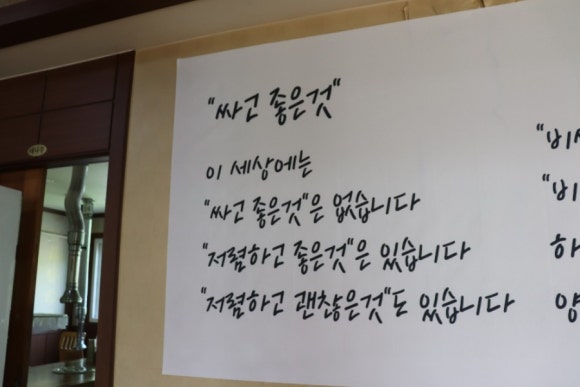 "싸고 좋은것"
이 세상에는
"싸고 좋은것"은 없습니다
"저렴하고 좋은것"은 있습니다
"저렴하고 괜찮은것"도 있습니다
"비
"비
하
양